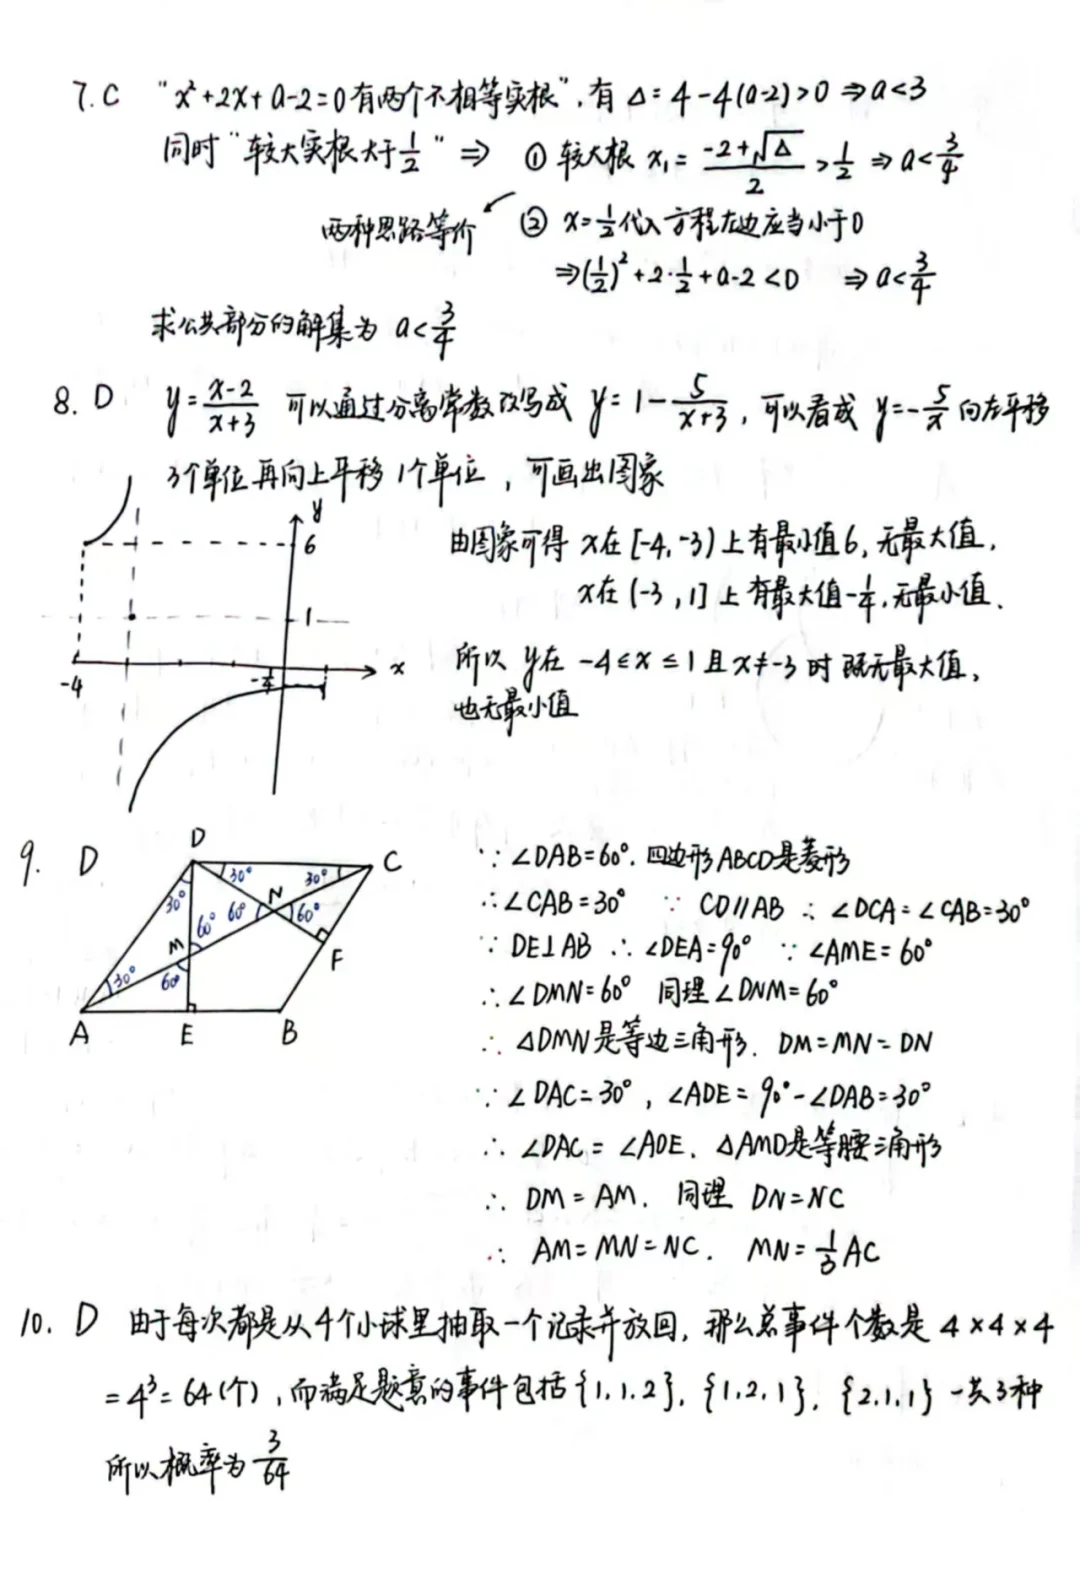 7. C "x²+2x+a-2=0有两个不相等实根", 有 Δ=4-4(a-2)>0 ⇒ a<3
同时"较大实根大于1/2" ⇒ ① 较大根 x₁ = (-2+√Δ)/2 > 1/2 ⇒ a<3/4
两种思路等价 ② x=1/2代入方程左边应当小于0
⇒(1/2)²+2·1/2+a-2<0 ⇒ a<3/4
求公共部分的解集为 a<3/4
8. D y=(x-2)/(x+3) 可以通过分离常数改写成 y=1-5/(x+3), 可以看成 y=-5/x 向左平移
3个单位再向上平移1个单位, 可画出图象
y
6
1
x
-4
-1/4
1
由图象可得 x在[-4,-3)上有最小值6, 无最大值,
x在(-3,1]上有最大值-1/4, 无最小值.
所以 y在 -4≤x≤1且x≠-3时既无最大值,
也无最小值
9. D
D
C
30°
30°
30°
N
60°
60°
60°
M
F
30°
60°
A
E
B
∵ ∠DAB=60°. 四边形ABCD是菱形
∴∠CAB=30° ∵ CD∥AB ∴ ∠DCA=∠CAB=30°
∵ DE⊥AB ∴ ∠DEA=90° ∵ ∠AME=60°
∴ ∠DMN=60° 同理∠DNM=60°
∴ ΔDMN是等边三角形. DM=MN=DN
∵ ∠DAC=30°, ∠ADE=90°-∠DAB=30°
∴ ∠DAC=∠ADE. ΔAMD是等腰三角形
∴ DM=AM. 同理 DN=NC
∴ AM=MN=NC. MN=1/3AC
10. D 由于每次都是从4个小球里抽取一个记录并放回, 那么总事件个数是 4×4×4
=4³=64(个), 而满足题意的事件包括{1,1,2}, {1,2,1}, {2,1,1}一共3种
所以概率为3/64